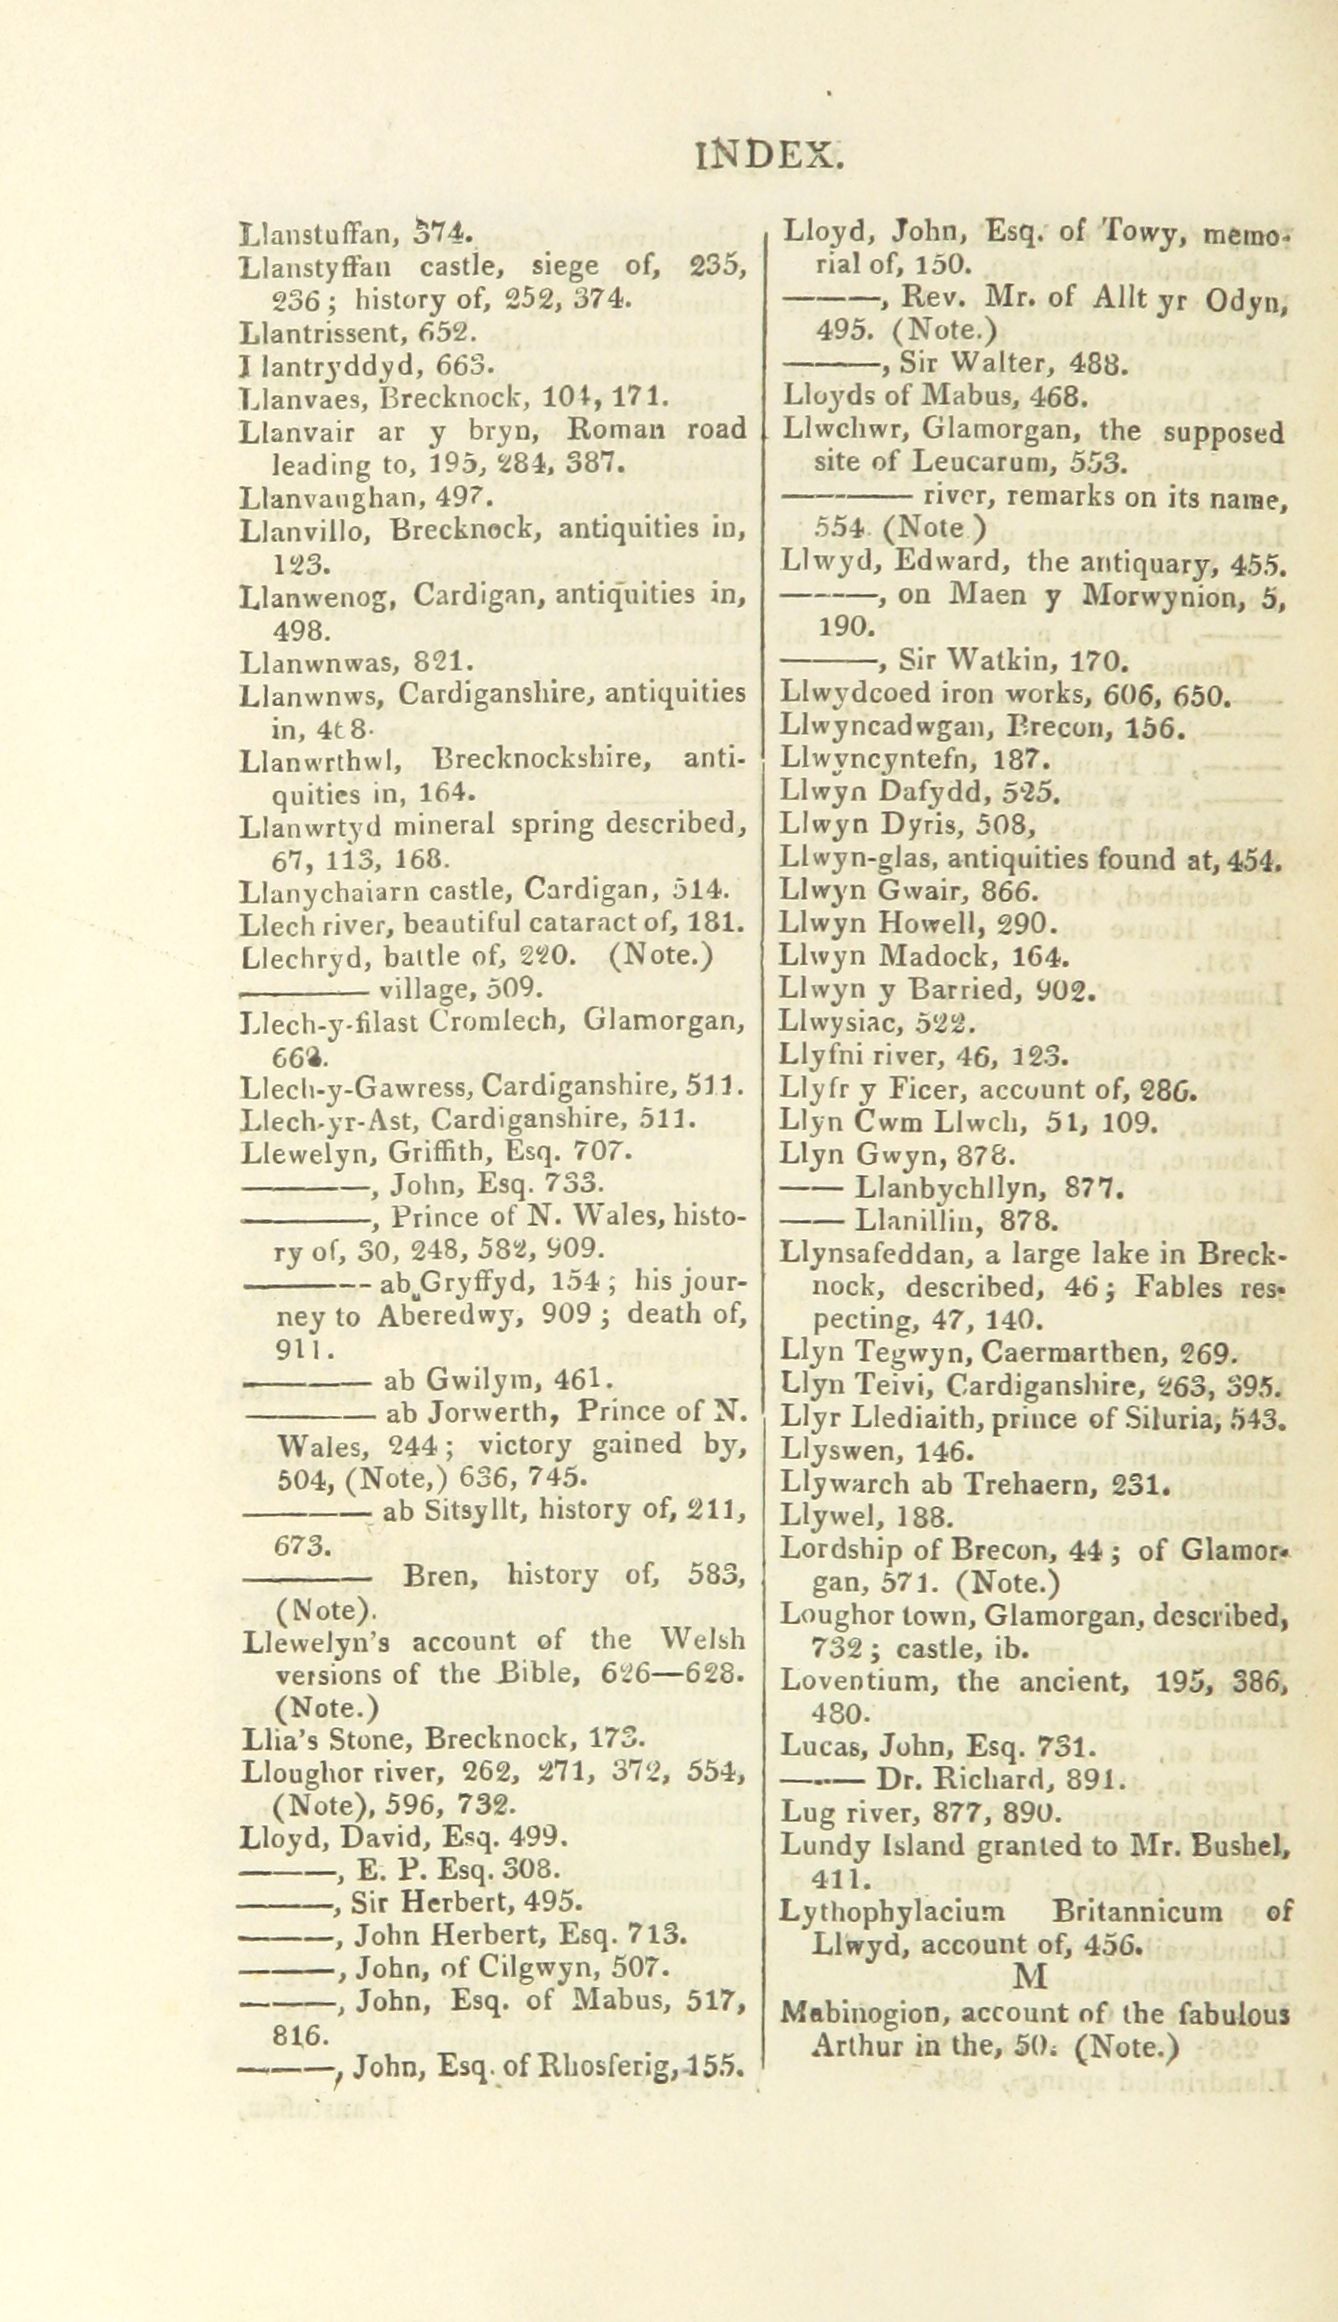 INDEX.
Llanstuffan, 374.
Llanstyffan castle, siege of, 235,
236; history of, 252, 374.
Llantrissent, 652.
Llantryddyd, 663.
Llanvaes, Brecknock, 104, 171.
Llanvair ar y bryn, Roman road
leading to, 195, 284, 387.
Llanvaughan, 497.
Llanvillo, Brecknock, antiquities in,
123.
Llanwenog, Cardigan, antiquities in,
498.
Llanwnwas, 821.
Llanwnws, Cardiganshire, antiquities
in,
Llanwrthwl, Brecknockshire, anti-
quities in, 164.
Llanwrtyd mineral spring described,
67, 113, 168.
Llanychaiarn castle, Cardigan, 514.
Llech river, beautiful cataract of, 181.
Llechryd, battle of, 220. (Note.)
——— village, 509.
Llech-y-filast Cromlech, Glamorgan,
662.
Llech-y-Gawress, Cardiganshire, 511.
Llech-yr-Ast, Cardiganshire, 511.
Llewelyn, Griffith, Esq. 707.
———, John, Esq. 733.
———, Prince of N. Wales, histo-
ry of, 30, 248, 582, 909.
——— ab Gryffyd, 154; his jour-
ney to Aberedwy, 909; death of,
911.
——— ab Gwilym, 461.
——— ab Jorwerth, Prince of N.
Wales, 244; victory gained by,
504, (Note,) 636, 745.
——— ab Sitsyllt, history of, 211,
673.
——— Bren, history of, 583,
(Note).
Llewelyn's account of the Welsh
versions of the Bible, 626—628.
(Note.)
Llia's Stone, Brecknock, 173.
Lloughor river, 262, 271, 372, 554,
(Note), 596, 732.
Lloyd, David, Esq. 499.
———, E. P. Esq. 308.
———, Sir Herbert, 495.
———, John Herbert, Esq. 713.
———, John, of Cilgwyn, 507.
———, John, Esq. of Mabus, 517,
816.
———, John, Esq. of Rhosferig, 155.
Lloyd, John, Esq. of Towy, memo-
rial of, 150.
———, Rev. Mr. of Allt yr Odyn,
495. (Note.)
———, Sir Walter, 488.
Lloyds of Mabus, 468.
Llwchwr, Glamorgan, the supposed
site of Leucarum, 553.
——— river, remarks on its name,
554 (Note )
Llwyd, Edward, the antiquary, 455.
———, on Maen y Morwynion, 5,
190.
———, Sir Watkin, 170.
Llwydcoed iron works, 606, 650.
Llwyncadwgan, Brecon, 156.
Llwyncyntefn, 187.
Llwyn Dafydd, 525.
Llwyn Dyris, 508,
Llwyn-glas, antiquities found at, 454.
Llwyn Gwair, 866.
Llwyn Howell, 290.
Llwyn Madock, 164.
Llwyn y Barried, 902.
Llwysiac, 522.
Llyfni river, 46, 123.
Llyfr y Ficer, account of, 286.
Llyn Cwm Llwch, 51, 109.
Llyn Gwyn, 878.
—— Llanbychllyn, 877.
—— Llanillin, 878.
Llynsafeddan, a large lake in Breck-
nock, described, 46; Fables res-
pecting, 47, 140.
Llyn Tegwyn, Caermarthen, 269.
Llyn Teivi, Cardiganshire, 263, 395.
Llyr Llediaith, prince of Siluria, 543.
Llyswen, 146.
Llywarch ab Trehaern, 231.
Llywel, 188.
Lordship of Brecon, 44; of Glamor-
gan, 571. (Note.)
Loughor town, Glamorgan, described,
732; castle, ib.
Loventium, the ancient, 195, 386,
480.
Lucas, John, Esq. 731.
——— Dr. Richard, 891.
Lug river, 877, 890.
Lundy Island granted to Mr. Bushel,
411.
Lythophylacium Britannicum of
Llwyd, account of, 456.
M
Mabinogion, account of the fabulous
Arthur in the, 50. (Note.)